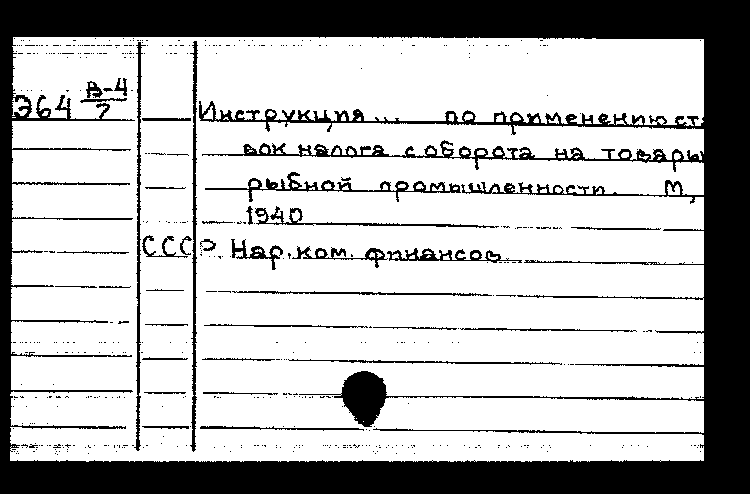 Э64 В-4/7
Инструкция... по применению ста
вок налога с оборота на товары
рыбной промышленности. М.,
1940
СССР. Нар. ком. финансов